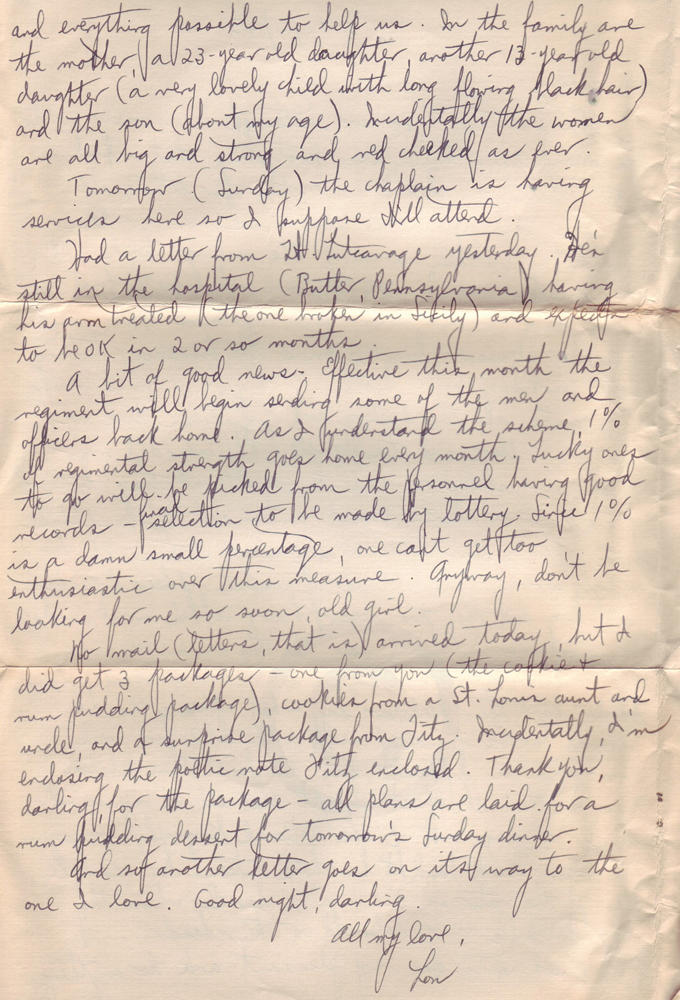 and everything possible to help us. In the family are
the mother, a 23-year old daughter, another 13-year old
daughter (a very lovely child with long flowing black hair)
and the son (about my age). Incidentally the women
are all big and strong and red cheeked as ever.
Tomorrow (Sunday) the chaplain is having
services here so I suppose I'll attend.
Had a letter from Lt. Lutcavage yesterday. He's
still in the hospital (Butler, Pennsylvania) having
his arm treated (the one broken in Sicily) and expects
to be OK in 2 or so months.
A bit of good news - Effective this month the
regiment will begin sending some of the men and
officers back home. As I understand the scheme, 1%
of regimental strength goes home every month. Lucky ones
to go will be picked from the personnel having good
records - final selection to be made by lottery. Since 1%
is a damn small percentage, one can't get too
enthusiastic over this measure. Anyway, don't be
looking for me so soon, old girl.
No mail (letters, that is) arrived today, but I
did get 3 packages - one from you (the cookie +
rum pudding package), cookies from a St. Louis aunt and
uncle, and a surprise package from Fitz. Incidentally, I'm
enclosing the poetic note Fitz enclosed. Thank you,
darling, for the package - all plans are laid for a
rum pudding dessert for tomorrow's Sunday dinner.
And so another letter goes on its way to the
one I love. Good night, darling.
All my love,
Lou